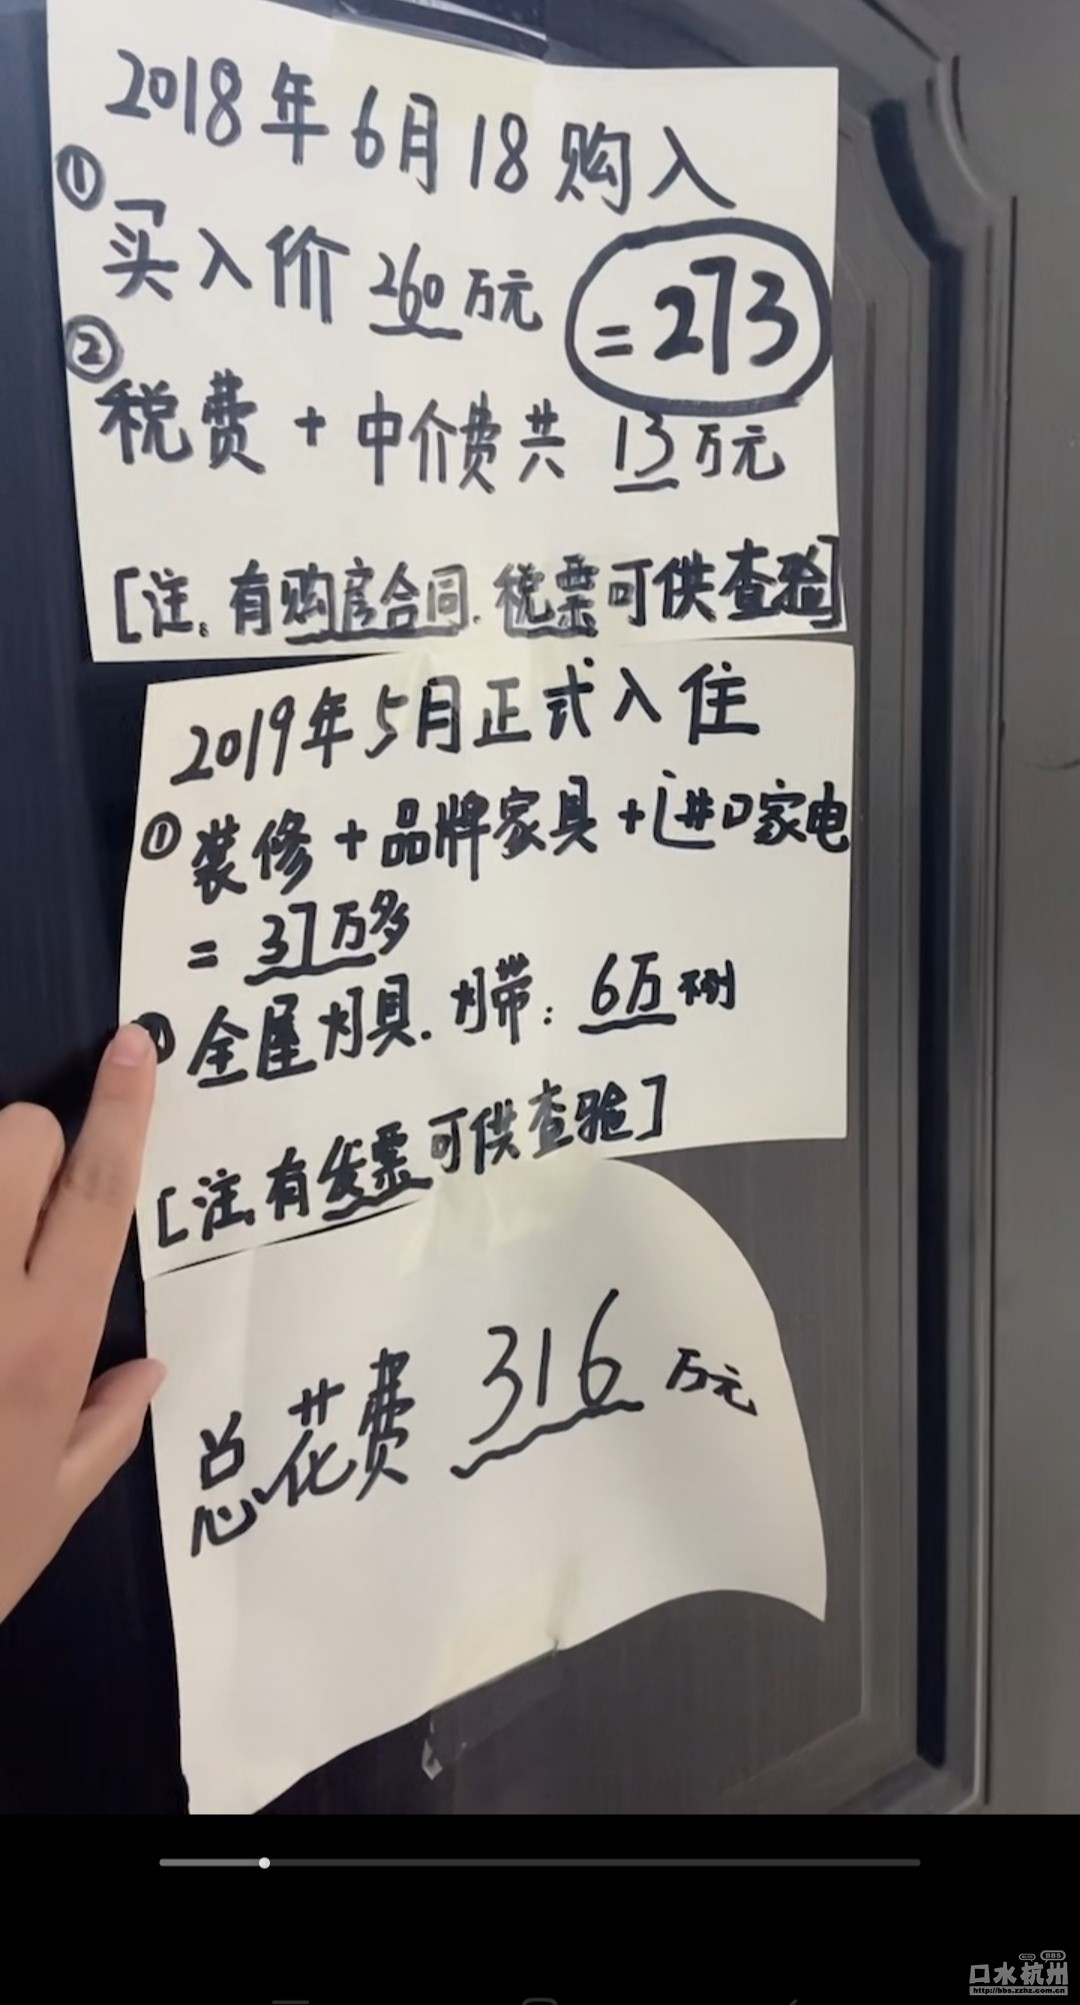 2018年6月18购入
①
买入价260万元 =273
②
税费+中介费共 13万元
[注:有购房合同.税票可供查验]
2019年5月正式入住
①装修+品牌家具+进口家电
=37万多
全屋灯具.灯带:6万不到
[注:有发票可供查验]
总花费 316万元
口水杭州
BBS
http://bbs.zzhz.com.cn